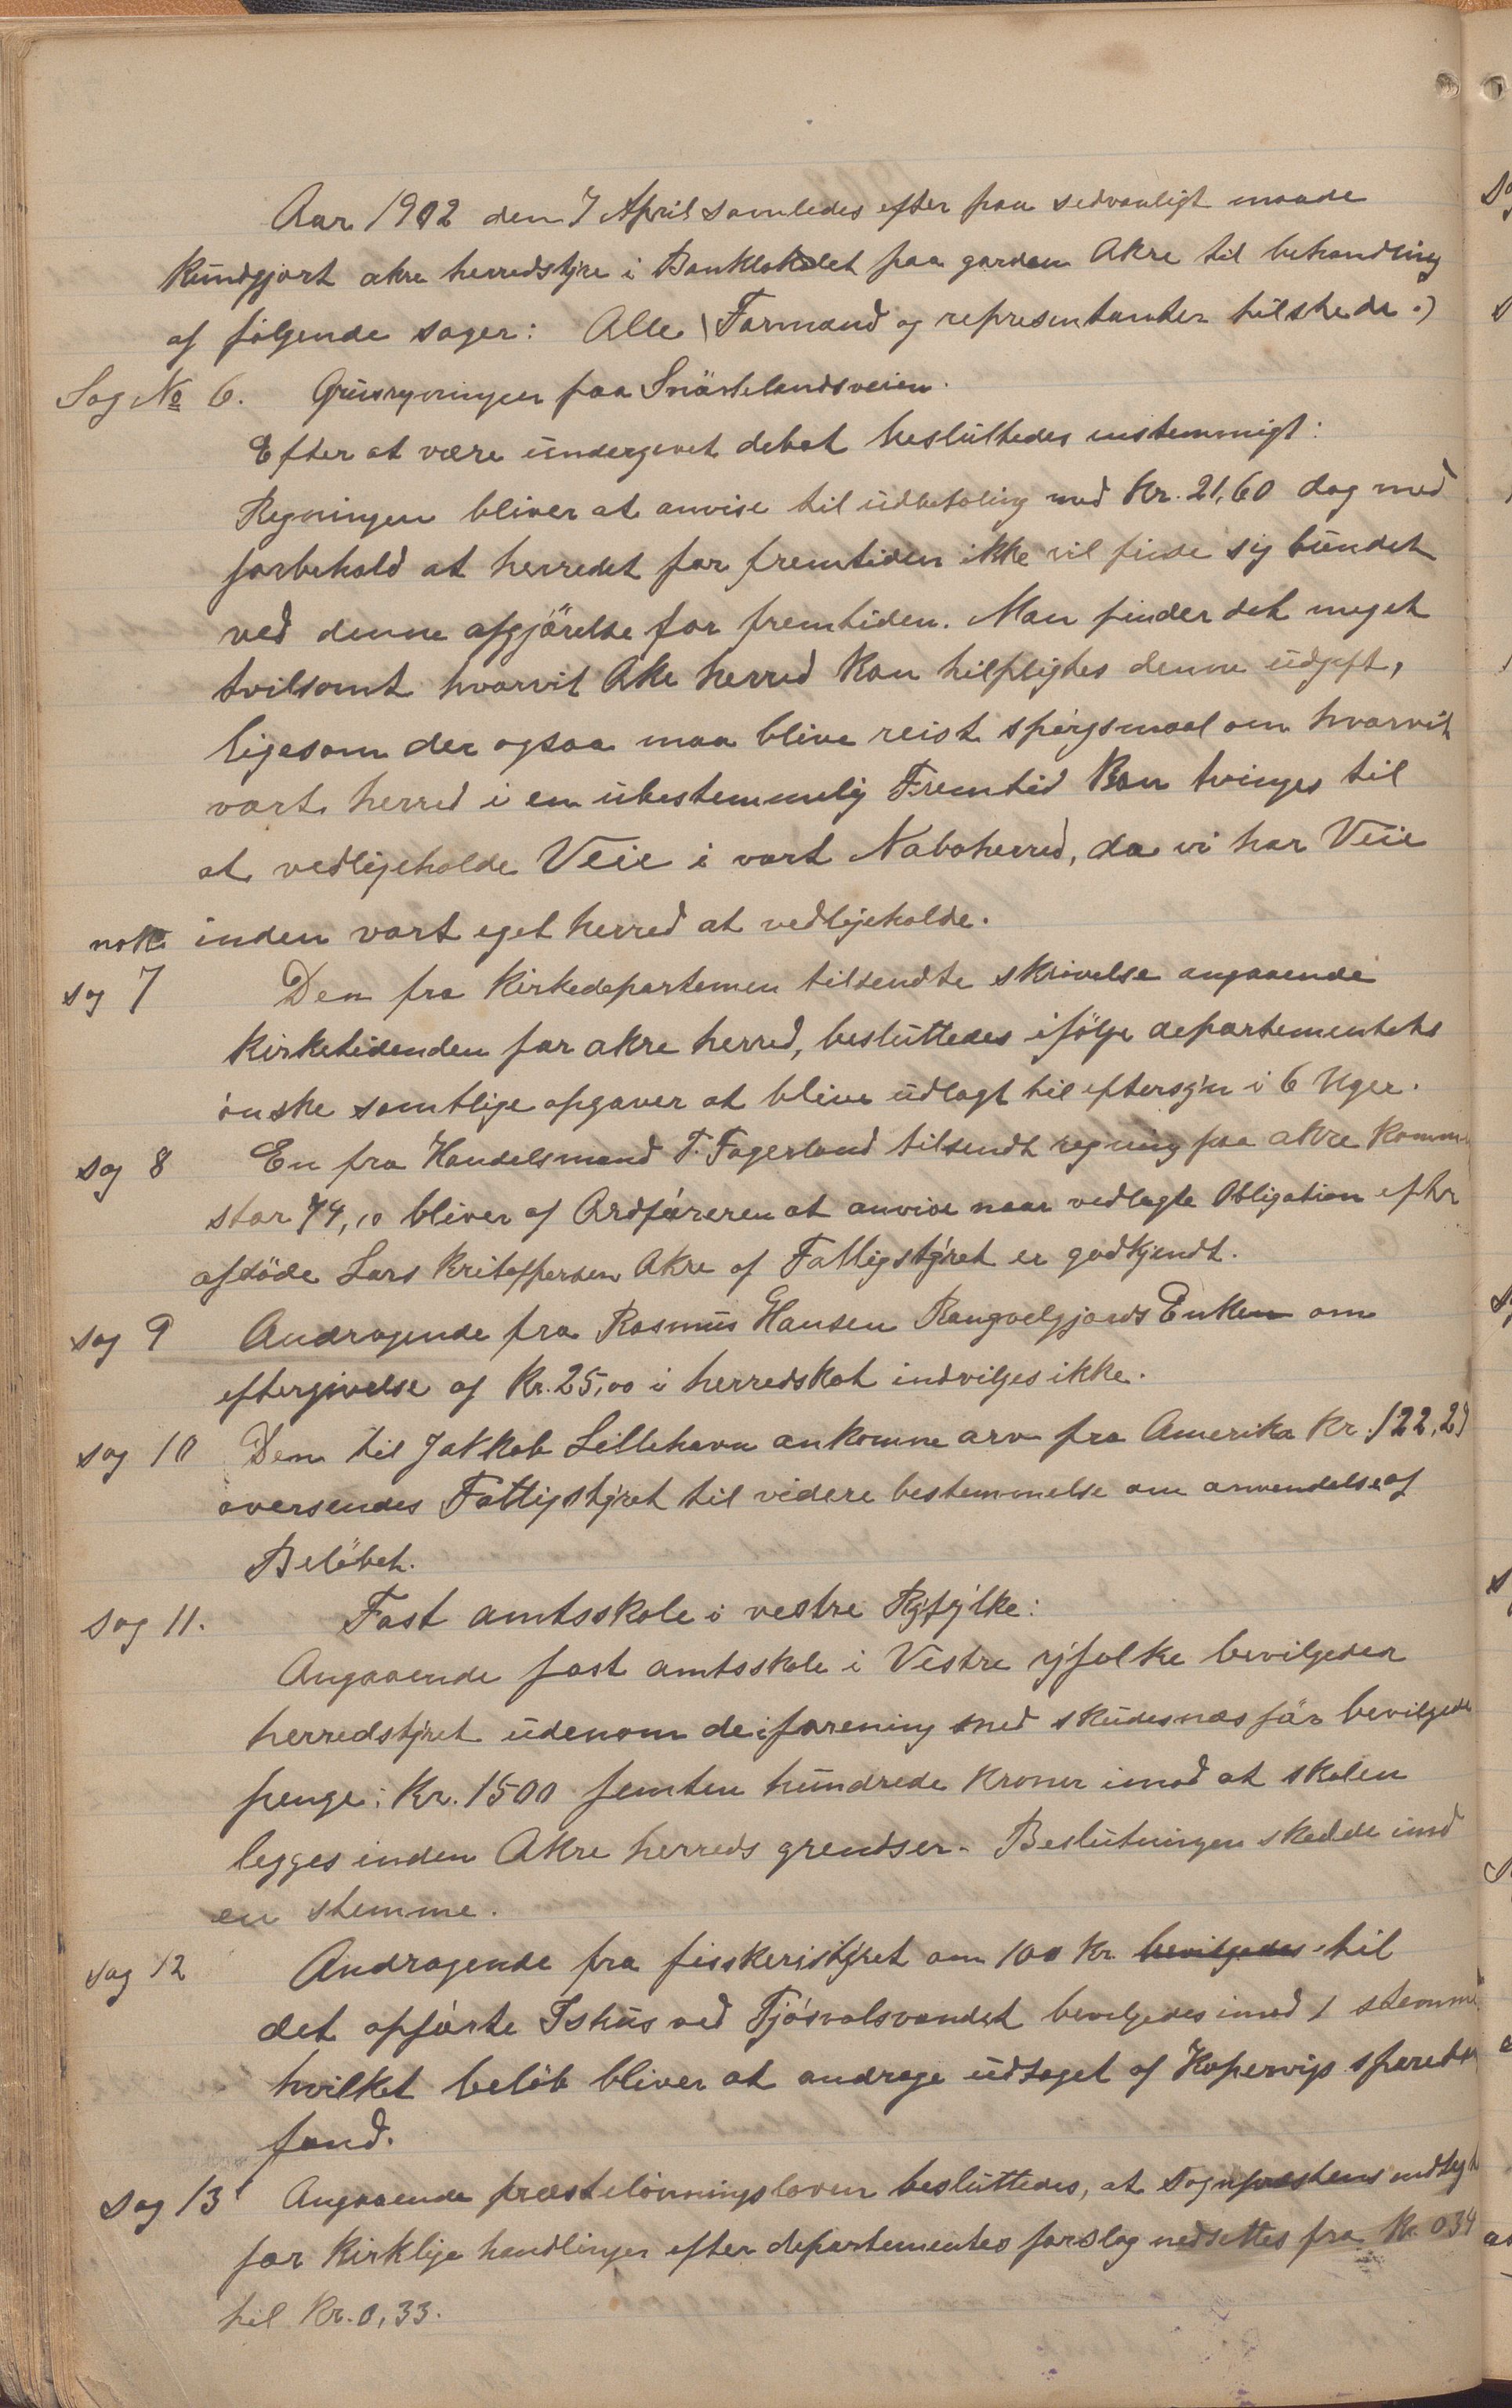 Aar 1902 den 7 April samledes efter paa sedvanligt maade
kundgjort akre herredstyre i Banklokalet paa garden Akre til behandling
af følgende sager: Alle (Formænd og representanter tilstede.)
Sag No 6. Grusregningen paa Snørtelandsveien.
Efter at være undergivet debat besluttedes enstemmigt:
Regningen bliver at anvise til udbetaling med Kr. 21,60 dog med
forbehold at herredet for fremtiden ikke vil finde sig bundet
ved denne afgjørelse for fremtiden. Man finder det meget
tvilsomt hvorvit Ake herred kan tilpligtes denne udgift,
ligesom der ogsaa maa blive reist spørgsmaal om hvorvit
vort herred i en ubestemmelig Fremtid kan tvinges til
at vedligeholde Veie i vort Naboherred, da vi har Veie
nok inden vort eget herred at vedligeholde.
sag 7 Den fra Kirkedepartemen tilsendte skrivelse angaaende
kirketidenden for akre herred, besluttedes ifølge departementets
ønske samtlige opgaver at blive udlagt til eftersyn i 6 Uger.
sag 8 En fra Handelsmand T. Fagerland tilsendt regning paa akre Komm-
stor 74,10 bliver af Ordføreren at anvise naar vedlagte Obligation efter
afdøde Lars Kritoffersen Akre af Fattigstyret er godkjendt.
sag 9 Andragende fra Rasmus Hansen Rangvelgjords Enken om
eftergivelse af Kr. 25,00 i herredskat indvilges ikke.
sag 10 Den til Jakkob Lillehavn ankomne arv fra Amerika Kr. 122,29
oversendes Fattigstyret til videre bestemmelse om anvendelse af
Beløbet.
sag 11. Fast amtsskole i vestre Ryfylke:
Angaaende fast amtsskole i Vestre ryfylke bevilgeder
herredstyret udenom de i forening med skudesnæs før bevilgede
penge: Kr. 1500 femten hundrede kroner imod at skolen
legges inden Akre herreds grendser. Beslutningen skedde imod
en stemme.
sag 12 Andragende fra fisskeristyret om 100 Kr. bevilgedes til
det opførte Ishus ved Tjøsvolsvandet bevilgedes imod 1 stemme
hvilket beløb bliver at andrage udtaget af Kopervigs sparebank
fond.
sag 13 Angaaende præstelønningsloven besluttedes, at Sognpræstens indtegt
for kirklige handlinger efter departementes forslag nedsettes fra Kr. 034
til Kr. 0,33.